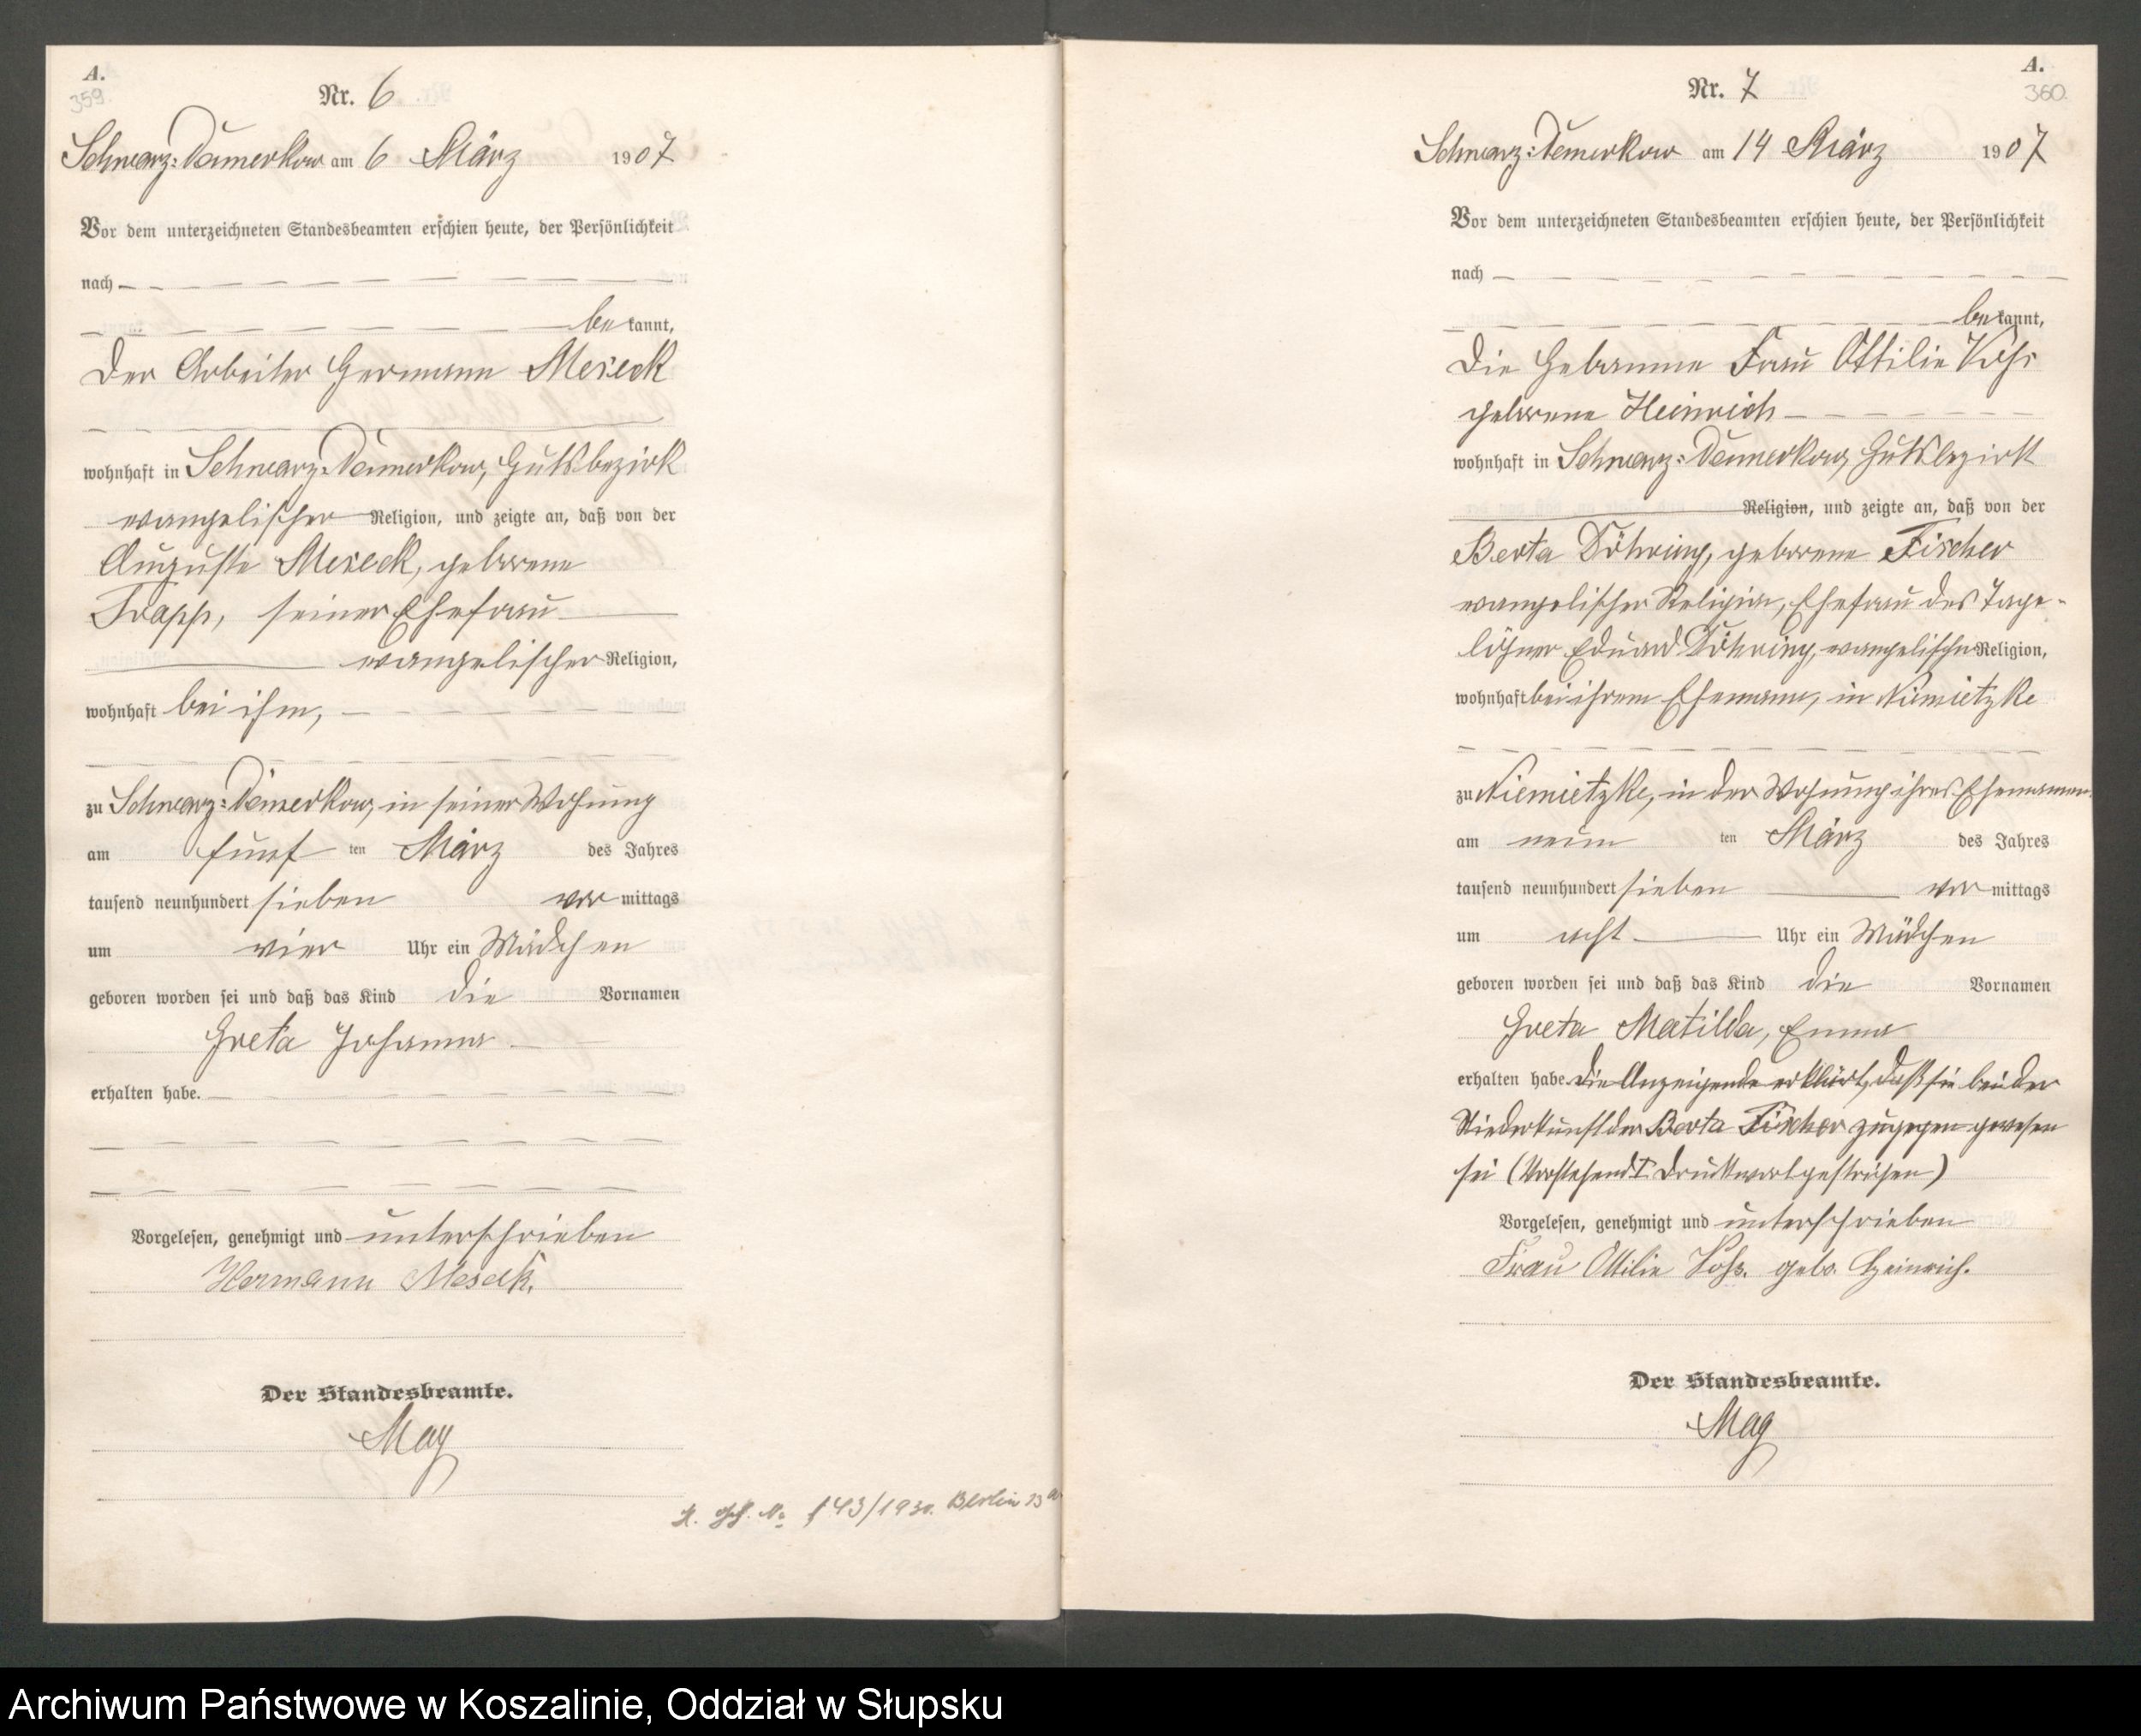 A.
359.
Nr. 6
Schwarz-Damerkow am 6 März 1907
Vor dem unterzeichneten Standesbeamten erschien heute, der Persönlichkeit
nach
bekannt,
der Arbeiter Hermann Meseck
wohnhaft in Schwarz-Damerkow, Gutsbezirk
evangelischer Religion, und zeigte an, daß von der
Auguste Meseck, geborene
Trapp, seiner Ehefrau
evangelischer Religion,
wohnhaft bei ihm,
zu Schwarz-Damerkow, in seiner Wohnung
am fünf ten März des Jahres
tausend neunhundert sieben vor mittags
um vier Uhr ein Mädchen
geboren worden sei und daß das Kind die Vornamen
Greta Johanna
erhalten habe.
Vorgelesen, genehmigt und unterschrieben
Hermann Meseck.
Der Standesbeamte.
May
143/1930. Berlin 13a
A.
360.
Nr. 7
Schwarz-Damerkow am 14 März 1907
Vor dem unterzeichneten Standesbeamten erschien heute, der Persönlichkeit
nach
bekannt,
die Hebamme Frau Ottilie Vohs
geborene Heinrich
wohnhaft in Schwarz-Damerkow, Gutsbezirk
Religion, und zeigte an, daß von der
Berta Döhring, geborene Fischer
evangelischer Religion, Ehefrau des Tage-
löhner Eduard Döhring, evangelischer Religion,
wohnhaft bei ihrem Ehemann, in Niemietzke
zu Niemietzke, in der Wohnung ihres Ehemannes
am neun ten März des Jahres
tausend neunhundert sieben vor mittags
um acht Uhr ein Mädchen
geboren worden sei und daß das Kind die Vornamen
Greta Matilda, Emma
erhalten habe. Die Anzeigende erklärt, daß sie bei der
Niederkunft der Berta Fischer zugegen gewesen
sei (Vorstehend 1 Druckwort gestrichen)
Vorgelesen, genehmigt und unterschrieben
Frau Ottilie Vohs. geb. Heinrich.
Der Standesbeamte.
May
Archiwum Państwowe w Koszalinie, Oddział w Słupsku